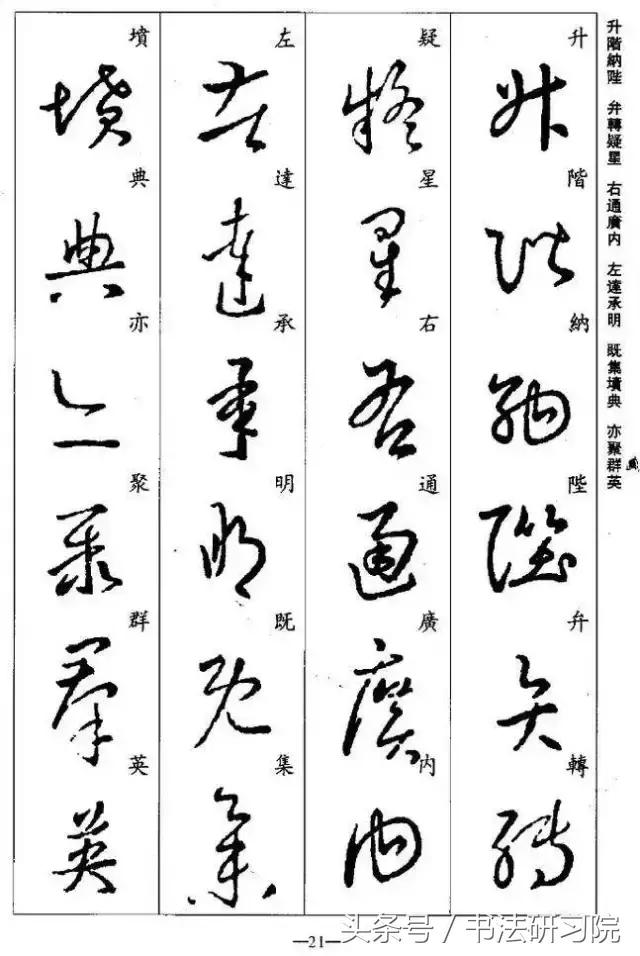 升階納陛 弁轉疑星 右通廣内 左達承明 既集墳典 亦聚群英
升階納陛弁轉
疑星右通廣内
左達承明既集
墳典亦聚群英
—21—
头条号 / 书法研习院